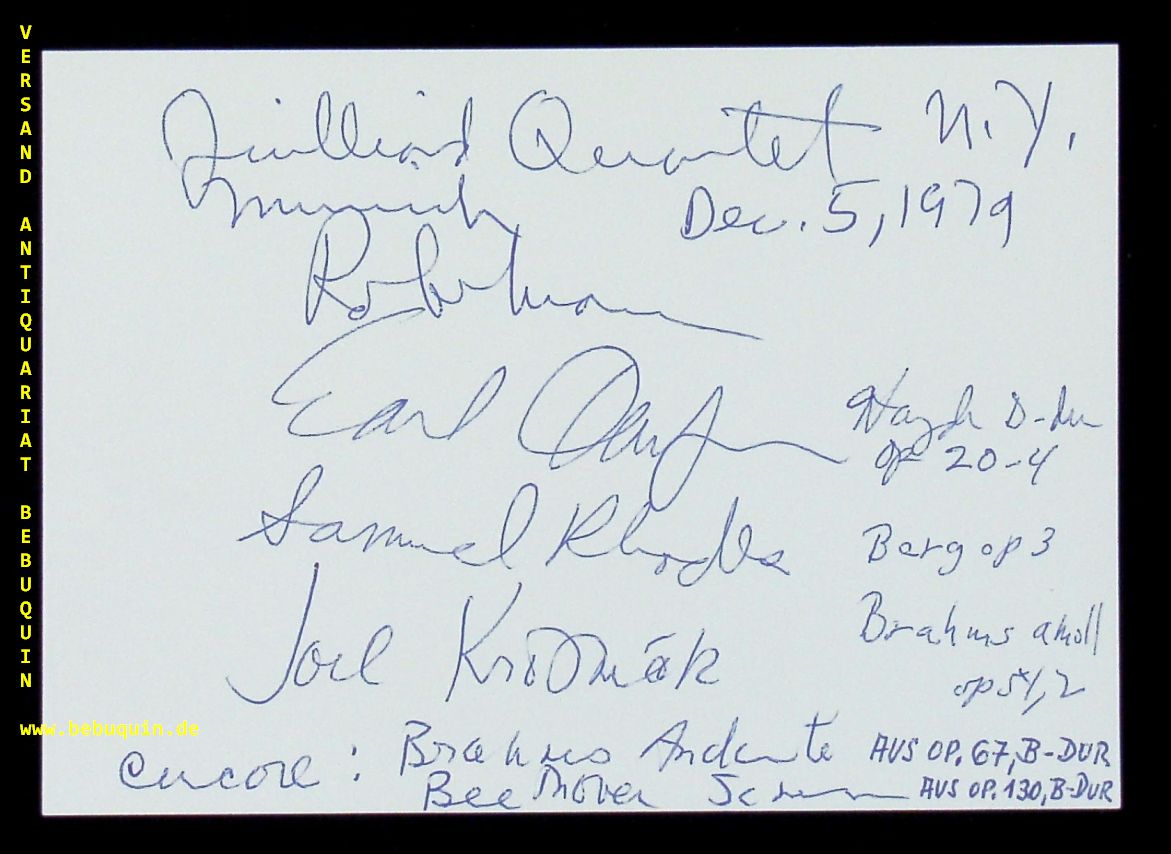 VERSAND ANTIQUARIAT BEBUQUIN
www.bebuquin.de
Juilliard Quartet N.Y.
Munich Dec. 5, 1979
Robert Mann
Earl Carlyss
Haydn D-dur
op 20-4
Samuel Rhodes
Berg op 3
Joel Krosnick
Brahms a moll
op 51,2
encore: Brahms Andante AUS OP. 67, B-DUR
Beethoven AUS OP. 130, B-DUR